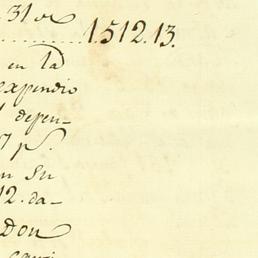 31 de
1.512.13.
en la
expendio
depen-
7 p.
en su
12. da-
Don